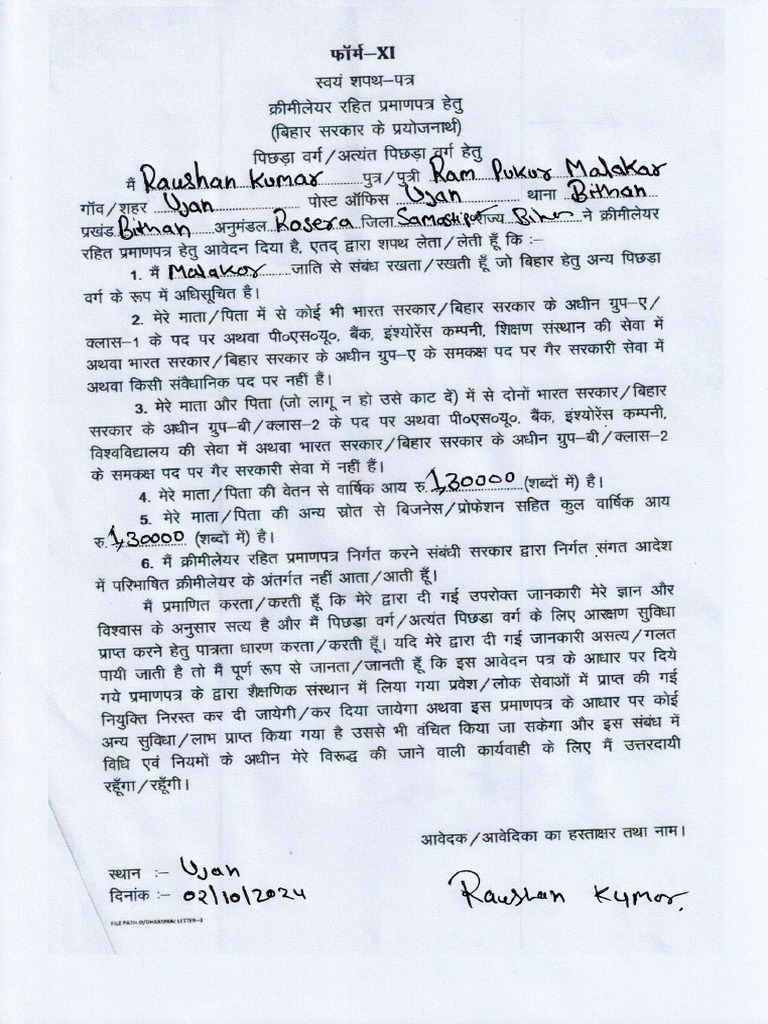 फॉर्म–XI
स्वयं शपथ–पत्र
क्रीमीलेयर रहित प्रमाणपत्र हेतु
(बिहार सरकार के प्रयोजनार्थ)
पिछड़ा वर्ग/अत्यंत पिछड़ा वर्ग हेतु
मैं Raushan Kumar पुत्र/पुत्री Ram Pukur Malakar
गाँव/शहर Ujan पोस्ट ऑफिस Ujan थाना Bithan
प्रखंड Bithan अनुमंडल Rosera जिला Samastipur राज्य Bihar ने क्रीमीलेयर
रहित प्रमाणपत्र हेतु आवेदन दिया है, एतद् द्वारा शपथ लेता/लेती हूँ कि :–
1. मैं Malakar जाति से संबंध रखता/रखती हूँ जो बिहार हेतु अन्य पिछड़ा
वर्ग के रूप में अधिसूचित है।
2. मेरे माता/पिता में से कोई भी भारत सरकार/बिहार सरकार के अधीन ग्रुप–ए/
क्लास–1 के पद पर अथवा पी०एस०यू०, बैंक, इंश्योरेंस कम्पनी, शिक्षण संस्थान की सेवा में
अथवा भारत सरकार/बिहार सरकार के अधीन ग्रुप–ए के समकक्ष पद पर गैर सरकारी सेवा में
अथवा किसी संवैधानिक पद पर नहीं हैं।
3. मेरे माता और पिता (जो लागू न हो उसे काट दें) में से दोनों भारत सरकार/बिहार
सरकार के अधीन ग्रुप–बी/क्लास–2 के पद पर अथवा पी०एस०यू०, बैंक, इंश्योरेंस कम्पनी,
विश्वविद्यालय की सेवा में अथवा भारत सरकार/बिहार सरकार के अधीन ग्रुप–बी/क्लास–2
के समकक्ष पद पर गैर सरकारी सेवा में नहीं हैं।
4. मेरे माता/पिता की वेतन से वार्षिक आय रु. 1,30000 (शब्दों में) है।
5. मेरे माता/पिता की अन्य स्रोत से बिजनेस/प्रोफेशन सहित कुल वार्षिक आय
रु. 1,30000 (शब्दों में) है।
6. मैं क्रीमीलेयर रहित प्रमाणपत्र निर्गत करने संबंधी सरकार द्वारा निर्गत संगत आदेश
में परिभाषित क्रीमीलेयर के अंतर्गत नहीं आता/आती हूँ।
मैं प्रमाणित करता/करती हूँ कि मेरे द्वारा दी गई उपरोक्त जानकारी मेरे ज्ञान और
विश्वास के अनुसार सत्य है और मैं पिछड़ा वर्ग/अत्यंत पिछडा वर्ग के लिए आरक्षण सुविधा
प्राप्त करने हेतु पात्रता धारण करता/करती हूँ। यदि मेरे द्वारा दी गई जानकारी असत्य/गलत
पायी जाती है तो मैं पूर्ण रूप से जानता/जानती हूँ कि इस आवेदन पत्र के आधार पर दिये
गये प्रमाणपत्र के द्वारा शैक्षणिक संस्थान में लिया गया प्रवेश/लोक सेवाओं में प्राप्त की गई
नियुक्ति निरस्त कर दी जायेगी/कर दिया जायेगा अथवा इस प्रमाणपत्र के आधार पर कोई
अन्य सुविधा/लाभ प्राप्त किया गया है उससे भी वंचित किया जा सकेगा और इस संबंध में
विधि एवं नियमों के अधीन मेरे विरूद्ध की जाने वाली कार्यवाही के लिए मैं उत्तरदायी
रहूँगा/रहूँगी।
आवेदक/आवेदिका का हस्ताक्षर तथा नाम।
स्थान :– Ujan
दिनांक :– 02/10/2024
Raushan Kumar.
FILE PATH-D/DHARMRAJ LETTER–3